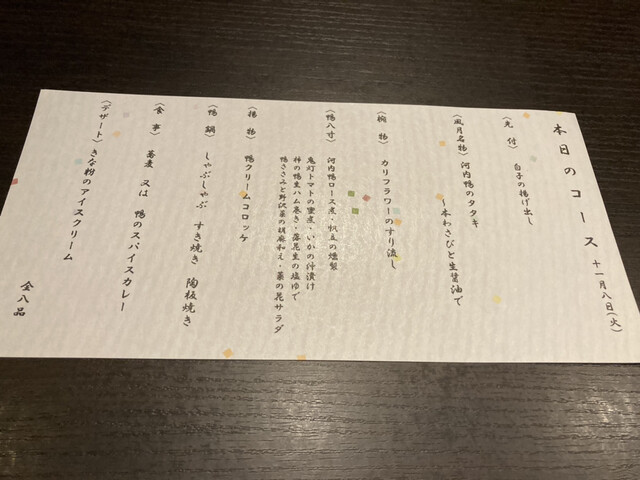 本日のコース 十一月八日(火)
〈先付〉 白子の揚げ出し
〈風月名物〉 河内鴨のタタキ
～本わさびと生醤油で
〈椀物〉 カリフラワーのすり流し
〈鴨八寸〉 河内鴨ロース煮・帆立の燻製
鬼灯トマトの蜜煮・いかの沖漬け
柿の鴨生ハム巻き・落花生の塩ゆで
鴨ささみと野沢菜の胡麻和え・菜の花サラダ
〈揚物〉 鴨クリームコロッケ
〈鴨鍋〉 しゃぶしゃぶ すき焼き 陶板焼き
〈食事〉 蕎麦 又は 鴨のスパイスカレー
〈デザート〉 きな粉のアイスクリーム
全八品